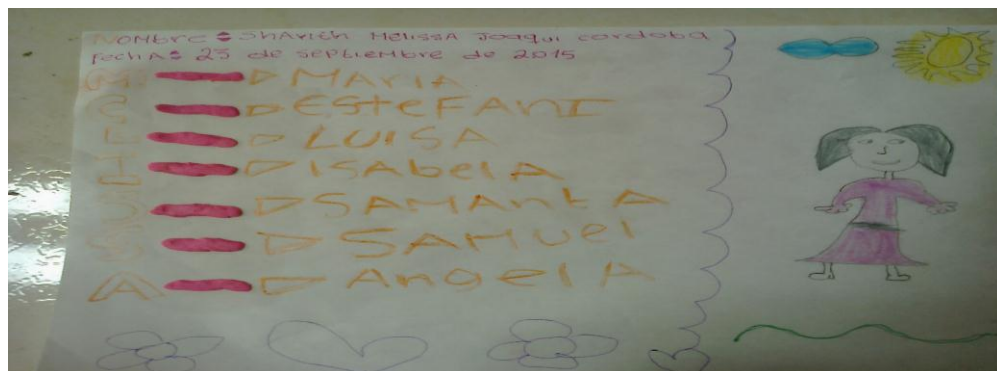 Nombre: Sharith Melissa Joaqui cordoba
fecha: 23 de septiembre de 2015
M MARIA
E EsteFANI
L LUISA
I ISAbelA
S SAMAntA
S SAMuel
A AngelA